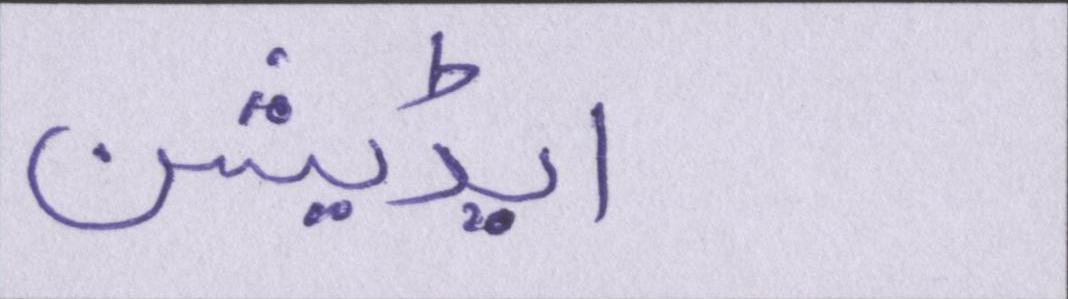 ایڈیشن